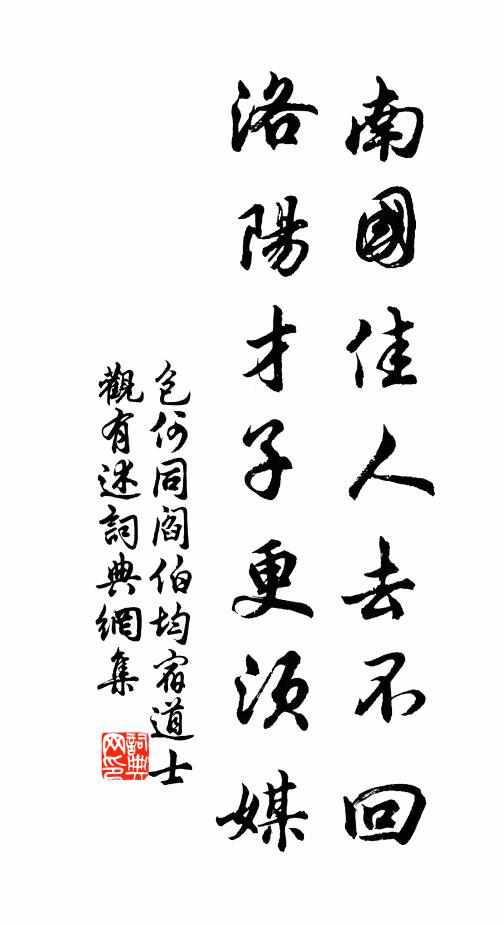 南國佳人去不回
洛陽才子更須媒
包何同閻伯均宿道士
觀有述詞典網集
詞典
网印